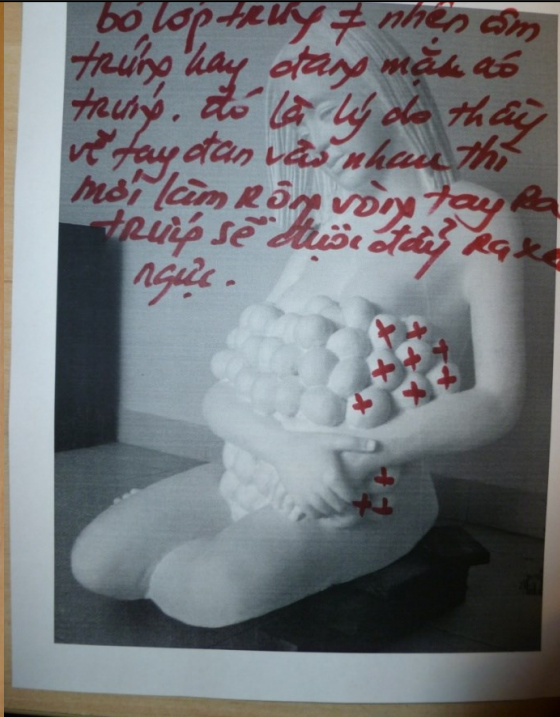 bỏ lớp trứng ≠ nhện ôm
trứng hay đang mặc áo
trứng. đó là lý do thầy
vẽ tay đan vào nhau thì
mới làm rộng vòng tay ra
trứng sẽ được đẩy ra xa
ngực.